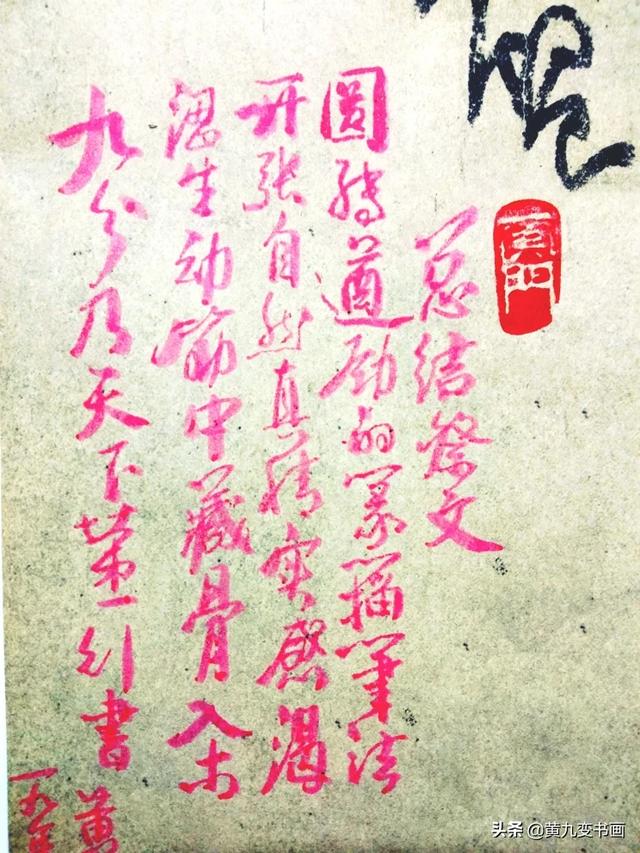 总结祭文
圆转遒劲的篆籀笔法
开张自然真情实感渴
涩生动筋中藏骨入木
九分乃天下第一行书 黄
头条 @黄九变书画